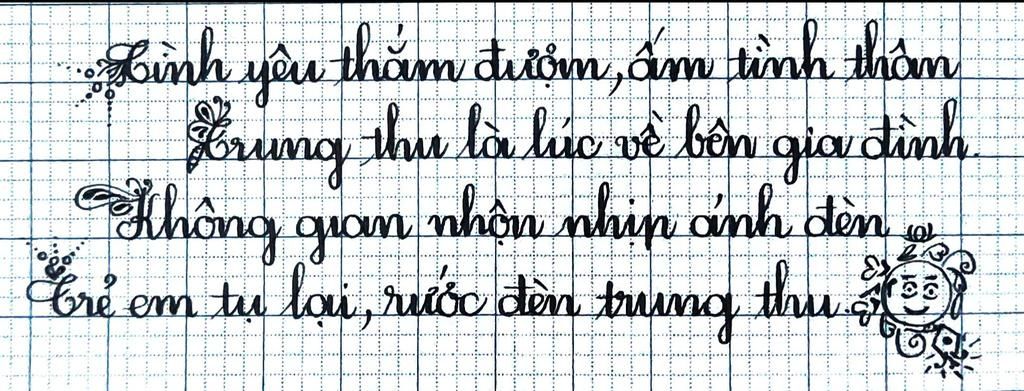 Tình yêu thắm đượm, ấm tình thân
Trung thu là lúc về bên gia đình.
Không gian nhộn nhịp ánh đèn
Trẻ em tụ lại, rước đèn trung thu.